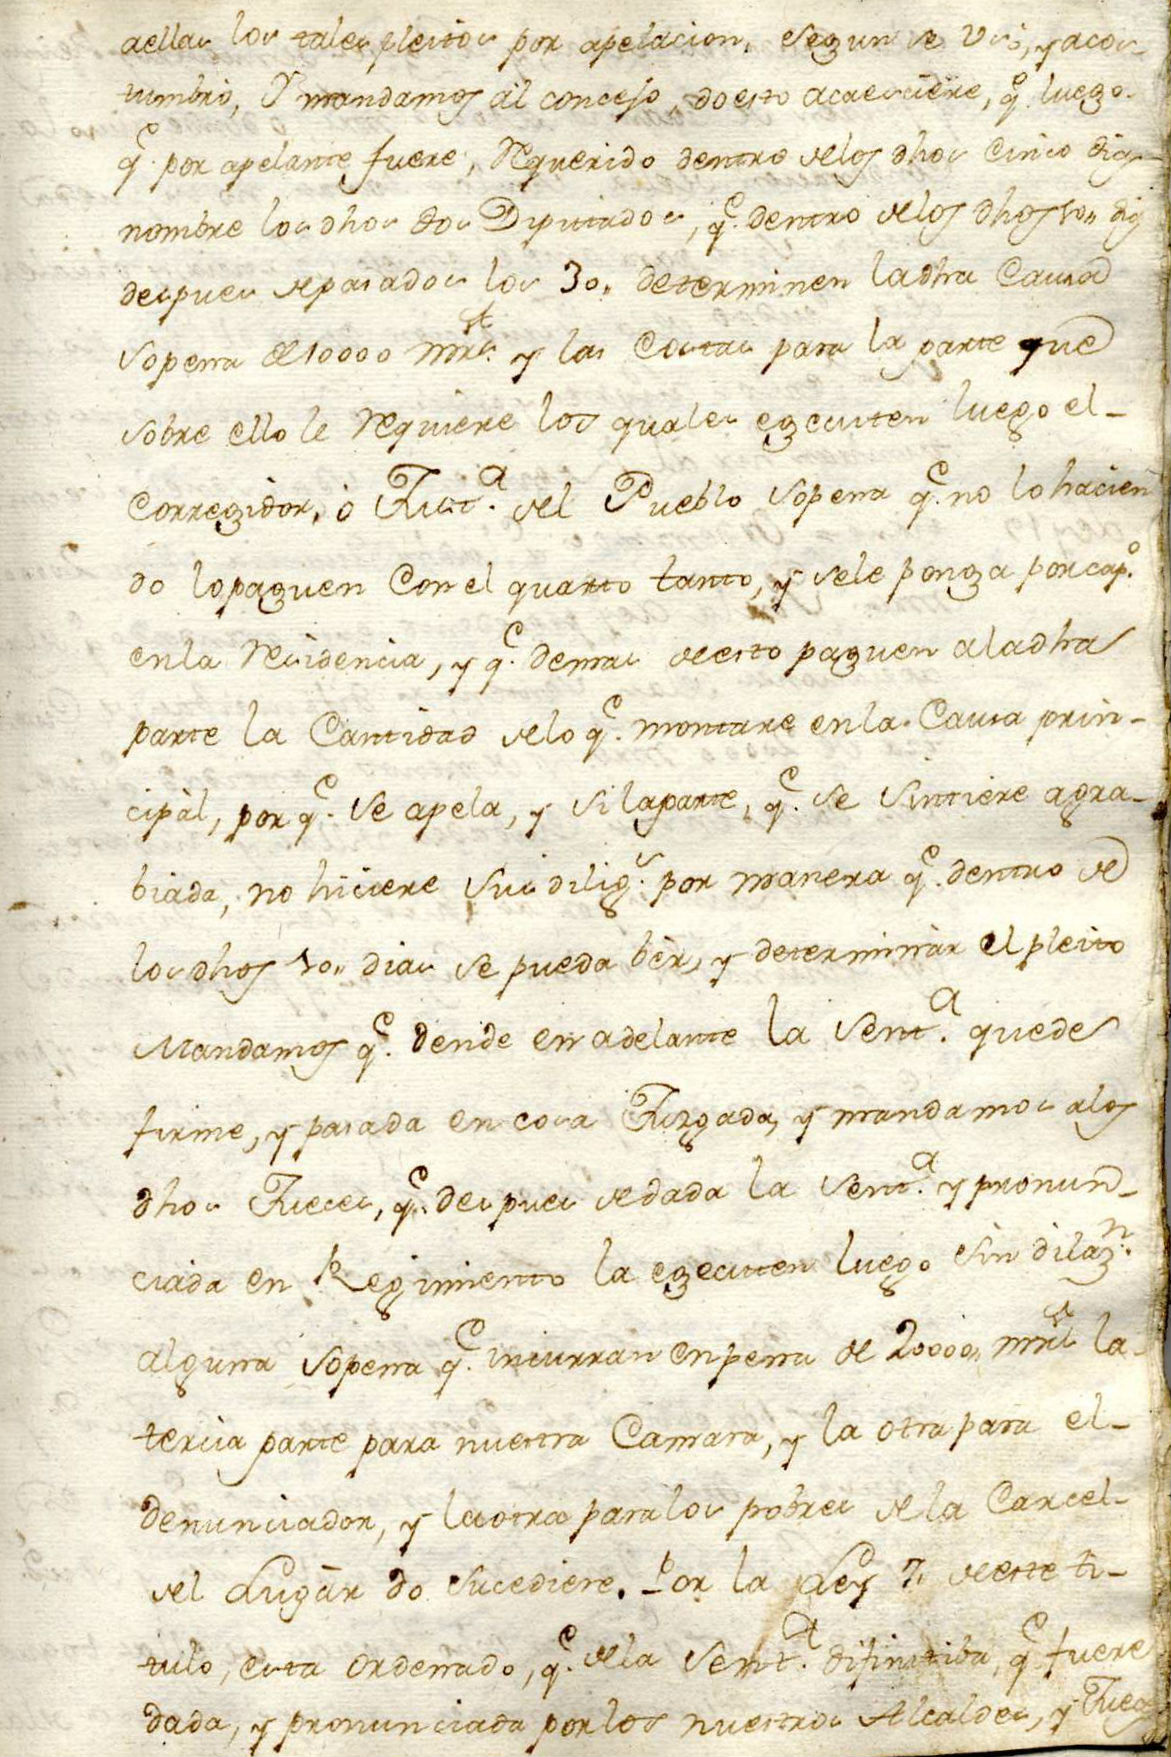 aellas los tales pleitos por apelacion, segun se Usó, y acos-
tumbró, Y mandamos al concejo, do esto acaesciere, q.e luego.
q.e por apelante fuere, Requerido dentro de los dhos cinco dias
nombre los dhos dos Diputados, q.e dentro de los dhos 10,, dias
despues de pasados los 30,, determinen la dha Causa
sopena de 10000 mrs. y las Costas para la parte que
sobre ello le Requiere los quales egecuten luego el-
Corregidor, ó Just.a del Pueblo sopena q.e no lo hacien
do lo paguen Con el quarto tanto, y sele ponga por cap.o
en la Residencia, y q.e demas de esto paguen a la dha
parte la Cantidad de lo q.e montare en la Causa prin-
cipal, por q.e se apela, y si la parte, q.e se sintiere agra-
biada, no hiciere sus dilig.s por manera q.e dentro de
los dhos 10,, dias se pueda bèr, y determinàr el pleito
Mandamos q.e dende en adelante la Sent.a quede
firme, y pasada en cosa Juzgada, y mandamos a los
dhos Jueces, q.e despues de dada la Sent.a y pronun-
ciada en Regimiento la egecuten luego sin dilaz.n
alguna sopena q.e incurran en pena de 20000,, mrs la-
tercia parte para nuestra Camara, y la otra para el-
denunciador, y la otra para los pobres de la Carcel-
del Lugàr do sucediere. Por la Ley 7,, de este ti-
tulo, esta Ordenado, q.e de la Sent.a difinitiba, q.e fuere
dada, y pronunciada por los nuestros Alcaldes, y Jueces